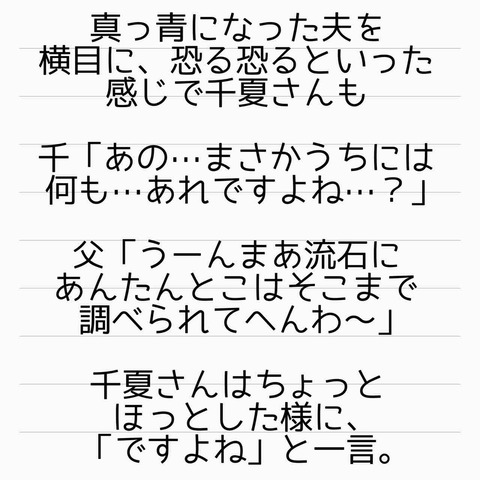 真っ青になった夫を
横目に、恐る恐るといった
感じで千夏さんも
千「あの…まさかうちには
何も…あれですよね…？」
父「うーんまあ流石に
あんたんとこはそこまで
調べられてへんわ〜」
千夏さんはちょっと
ほっとした様に、
「ですよね」と一言。